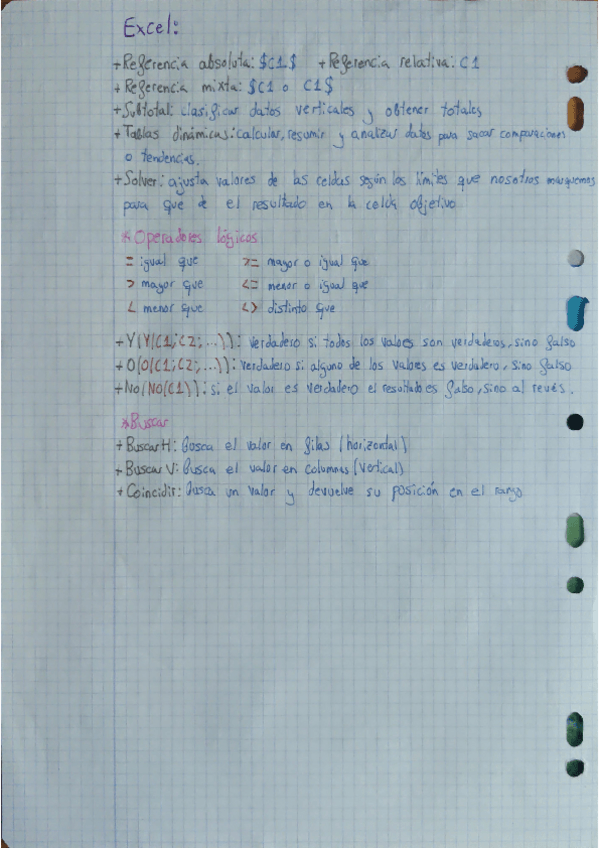 Excel:
+Referencia absoluta: $C1$ +Referencia relativa: C1
+Referencia mixta: $C1 o C1$
+Subtotal: clasificar datos verticales y obtener totales
+Tablas dinámicas: calcular, resumir y analizar datos para sacar comparaciones
o tendencias.
+Solver: ajusta valores de las celdas según los límites que nosotros marquemos
para que de el resultado en la celda objetivo
*Operadores lógicos
= igual que >= mayor o igual que
> mayor que <= menor o igual que
< menor que <> distinto que
+Y(Y(C1;C2;...)): verdadero si todos los valores son verdaderos, sino falso
+O(O(C1;C2;...)): verdadero si alguno de los valores es verdadero, sino falso
+No(NO(C1)): si el valor es verdadero el resultado es falso, sino al revés.
*Buscar
+BuscarH: Busca el valor en filas (horizontal)
+BuscarV: Busca el valor en columnas (vertical)
+Coincidir: busca un valor y devuelve su posición en el rango